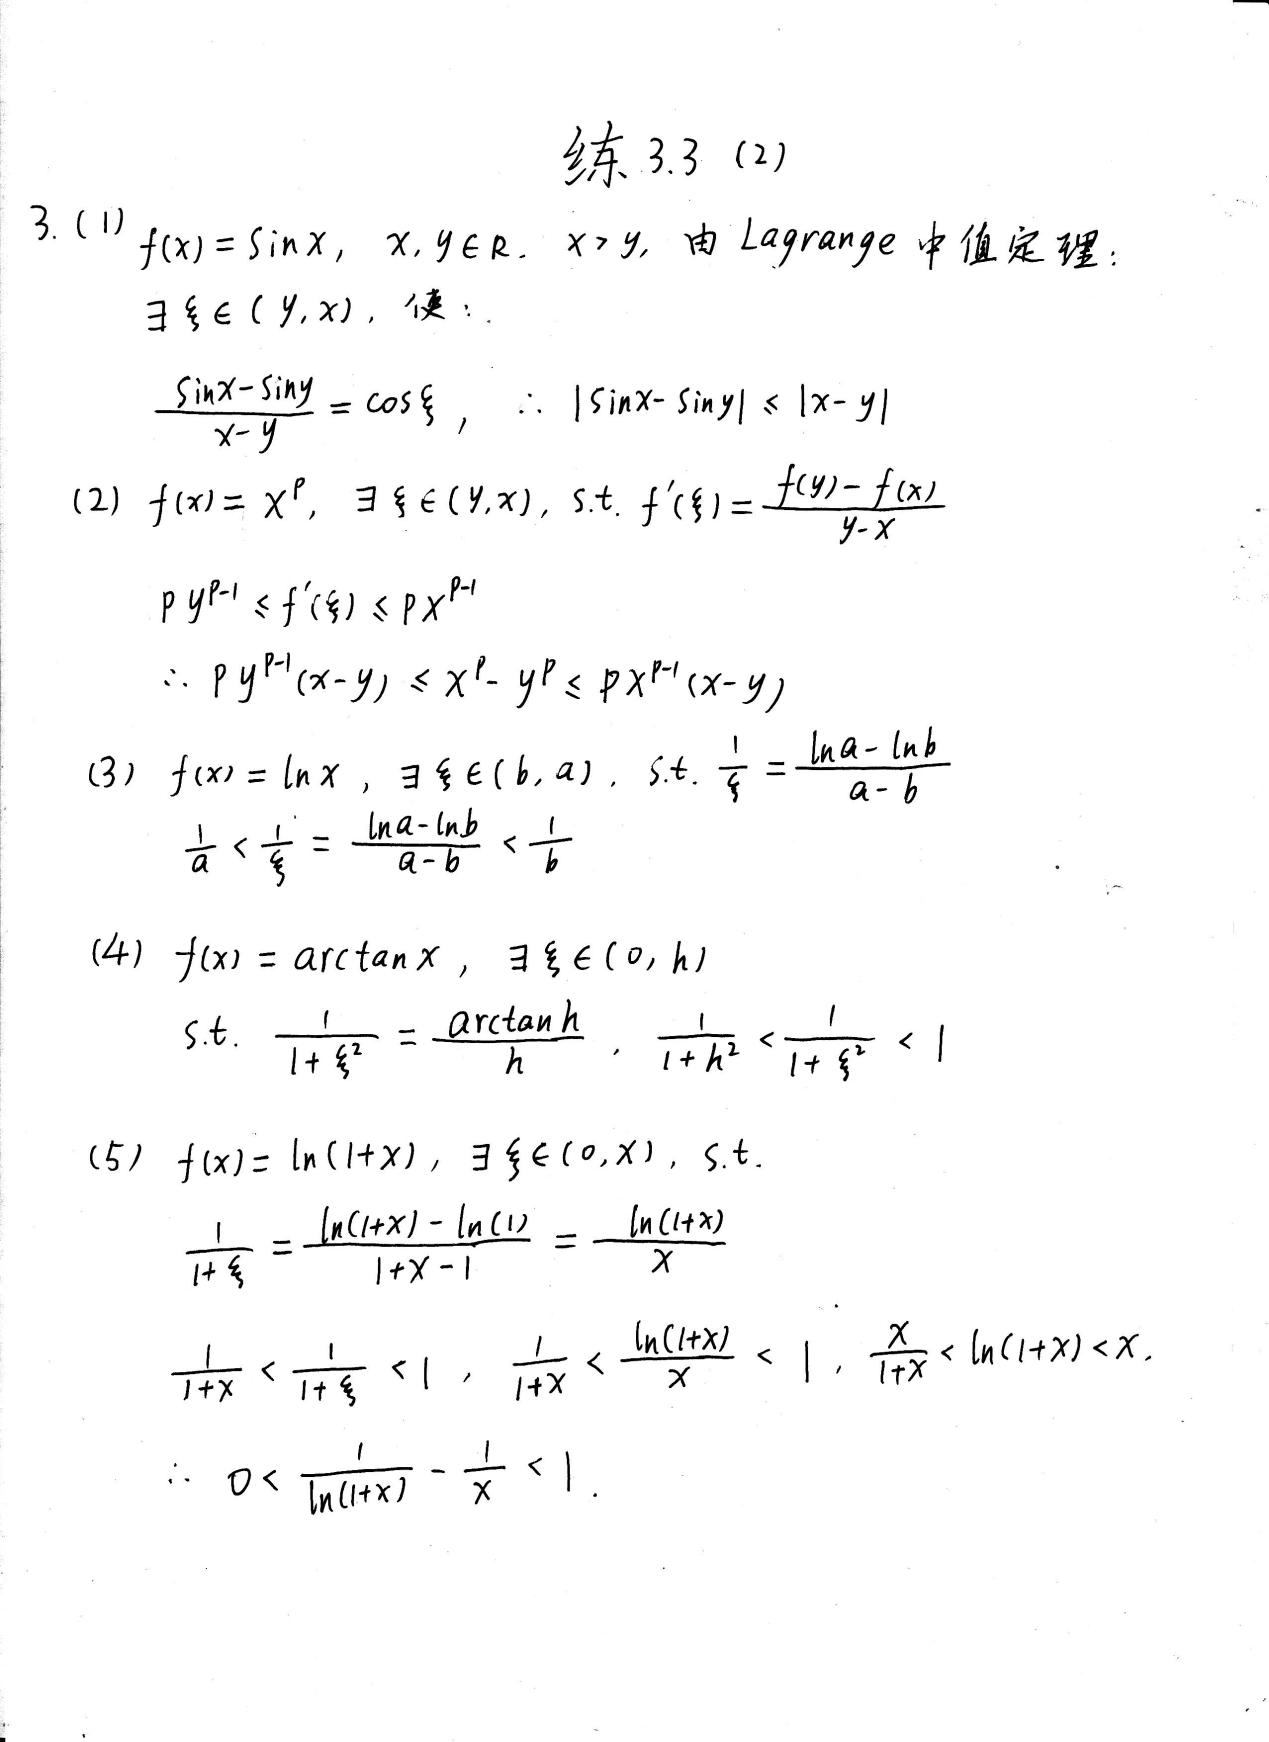 练 3.3 (2)
3. (1) f(x) = sinx, x, y∈R. x>y, 由 Lagrange 中值定理:
∃ ξ ∈ (y, x), 使:
(sinx-siny)/(x-y) = cosξ, ∴ |sinx-siny| ≤ |x-y|
(2) f(x) = x^p, ∃ ξ ∈ (y, x), s.t. f'(ξ) = (f(y)-f(x))/(y-x)
py^(p-1) ≤ f'(ξ) ≤ px^(p-1)
∴ py^(p-1)(x-y) ≤ x^p - y^p ≤ px^(p-1)(x-y)
(3) f(x) = lnx, ∃ ξ ∈ (b, a), s.t. 1/ξ = (lna-lnb)/(a-b)
1/a < 1/ξ = (lna-lnb)/(a-b) < 1/b
(4) f(x) = arctanx, ∃ ξ ∈ (0, h)
s.t. 1/(1+ξ²) = arctanh/h, 1/(1+h²) < 1/(1+ξ²) < 1
(5) f(x) = ln(1+x), ∃ ξ ∈ (0, x), s.t.
1/(1+ξ) = (ln(1+x)-ln(1))/(1+x-1) = ln(1+x)/x
1/(1+x) < 1/(1+ξ) < 1, 1/(1+x) < ln(1+x)/x < 1, x/(1+x) < ln(1+x) < x.
∴ 0 < 1/ln(1+x) - 1/x < 1.